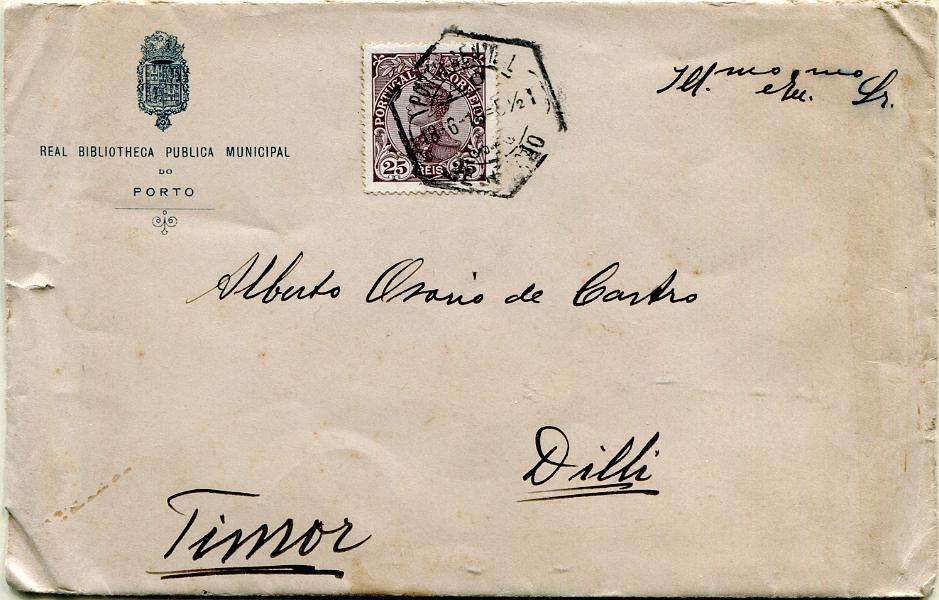 REAL BIBLIOTHECA PUBLICA MUNICIPAL
DO
PORTO
PORTUGAL CORREIOS
25 REIS 25
Ill.mo e Ex.mo Sr.
Alberto Osorio de Castro
Dilli
Timor